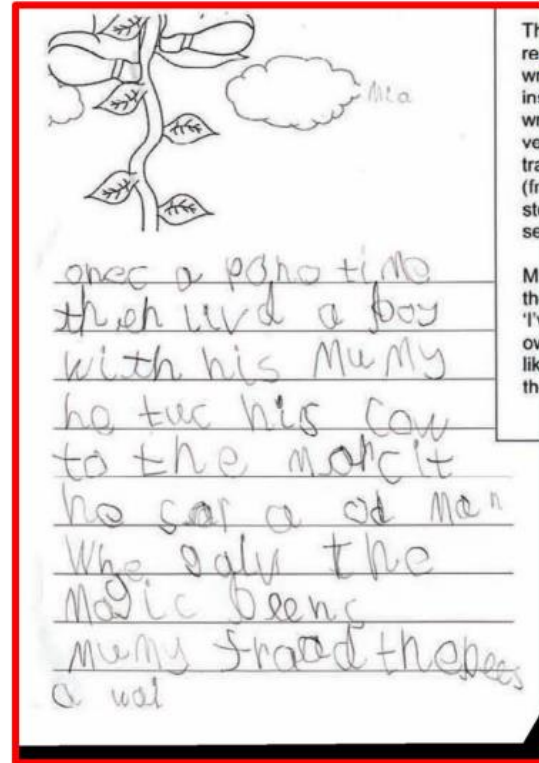 Mia
onec a pono time
then livd a boy
with his Mumy
he tuc his cow
to the marcit
he sar a od Man
Whe the
Magic beens
Mumy fraod the bees
a wai
Th
re
wr
ins
wr
ve
tra
(fr
st
se
M
th
'I'v
ow
lik
th